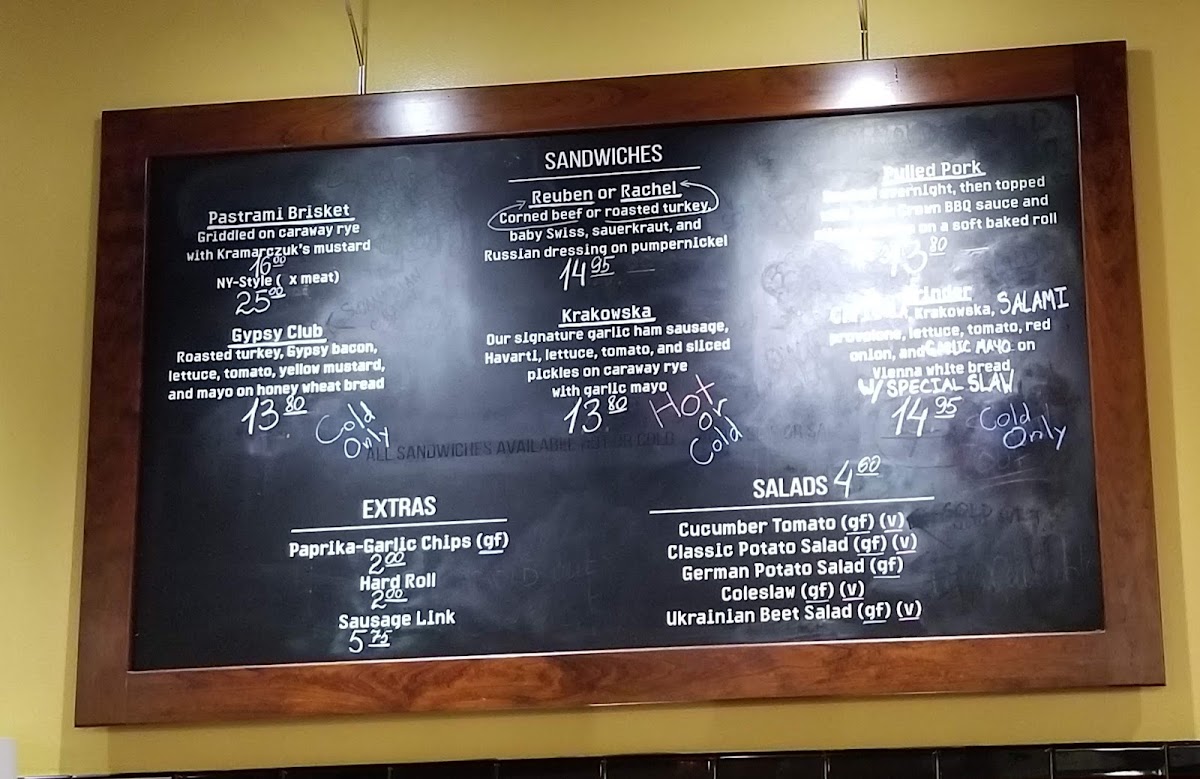 SANDWICHES
Pastrami Brisket
Griddled on caraway rye
with Kramarczuk's mustard
16.00
NY-Style ( x meat)
25.00
Gypsy Club
Roasted turkey, Gypsy bacon,
lettuce, tomato, yellow mustard,
and mayo on honey wheat bread
13.80
Cold
Only
Reuben or Rachel
Corned beef or roasted turkey,
baby Swiss, sauerkraut, and
Russian dressing on pumpernickel
14.95
Krakowska
Our signature garlic ham sausage,
Havarti, lettuce, tomato, and sliced
pickles on caraway rye
with garlic mayo
13.80
Hot
or
Cold
Pulled Pork
overnight, then topped
BBQ sauce and
on a soft baked roll
13.80
Grinder
Krakowska, SALAMI
provolone, lettuce, tomato, red
onion, and GARLIC MAYO on
Vienna white bread
W/ SPECIAL SLAW
14.95
Cold
Only
ALL SANDWICHES AVAILABLE HOT OR COLD
EXTRAS
Paprika-Garlic Chips (gf)
2.00
Hard Roll
2.00
Sausage Link
5.75
SALADS 4.60
Cucumber Tomato (gf) (v)
Classic Potato Salad (gf) (v)
German Potato Salad (gf)
Coleslaw (gf) (v)
Ukrainian Beet Salad (gf) (v)